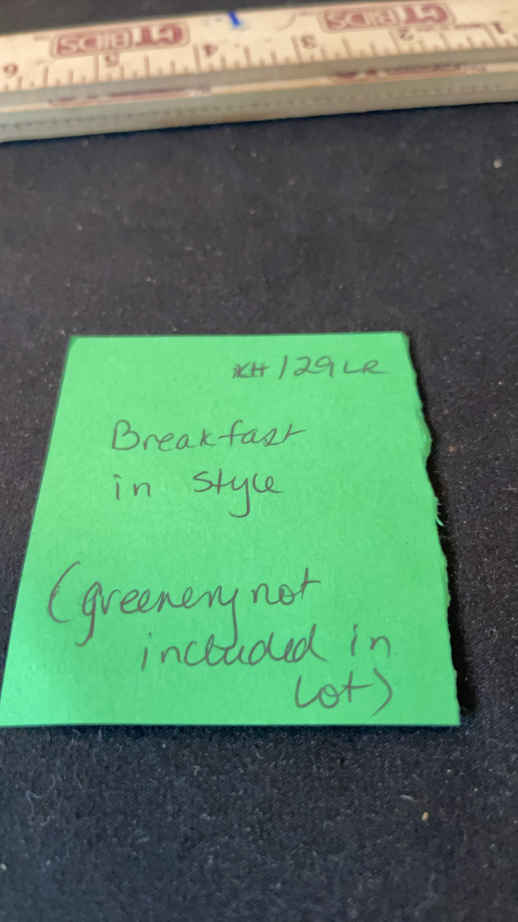 CTBIDS CTBIDS
6 5 4 3 2 1
129 LR
Breakfast
in style
(greenery not
included in
Lot)